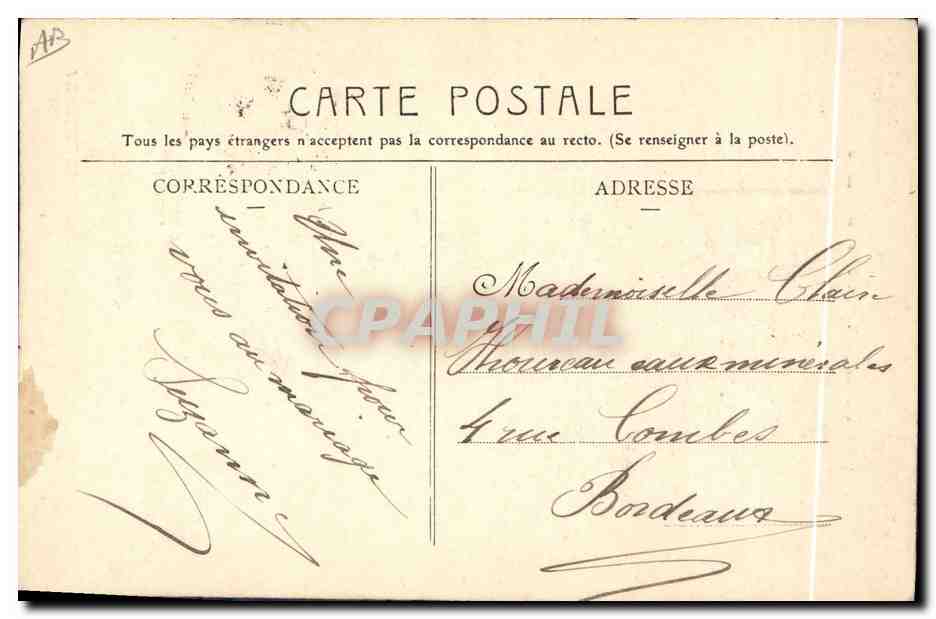 AB
CARTE POSTALE
Tous les pays étrangers n'acceptent pas la correspondance au recto. (Se renseigner à la poste).
CORRESPONDANCE
Une
invitation pour
vous au mariage
Suzanne
ADRESSE
Mademoiselle
eaux minérales
4 rue Combes
Bordeaux
CPAPHIL